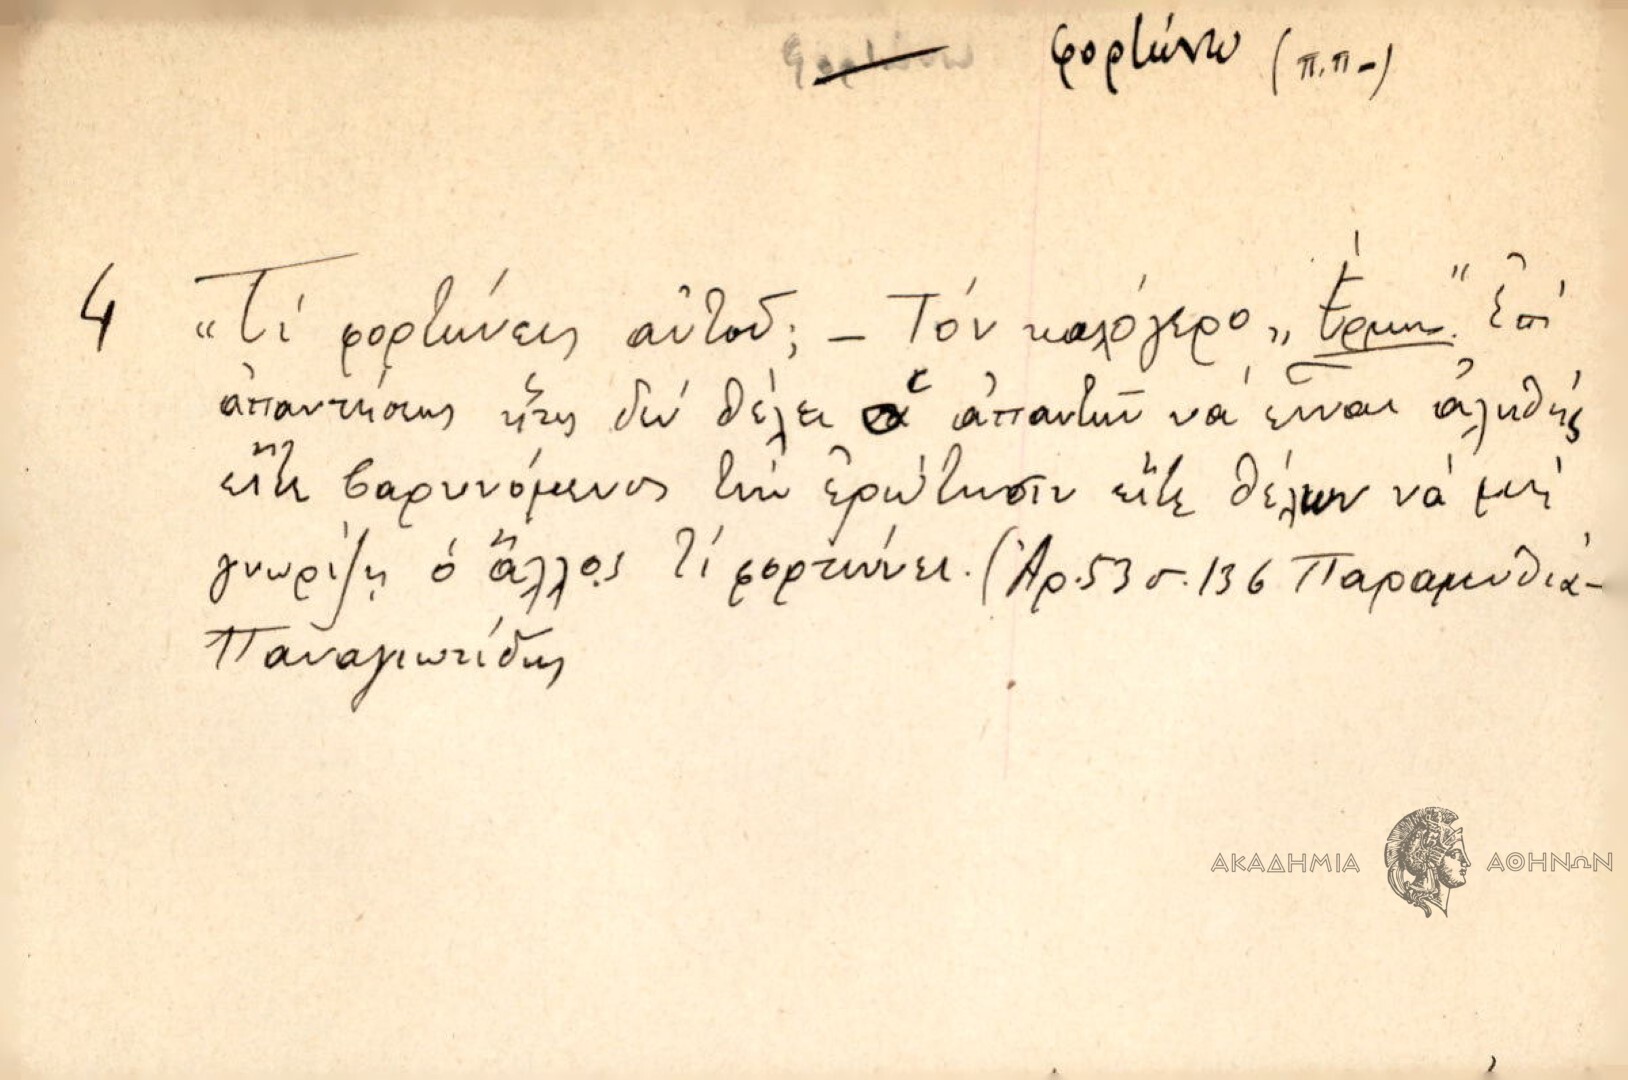 φορτώνω (π.π-)
4 "Τί φορτώνεις αὐτοῦ; – Τόν καλόγερο" Ἑρμ. Ἐπί
ἀπαντήσεως ἥτις δέν θέλει ὁ ἀπαντῶν νά εἶναι ἀληθής
εἴτε βαρυνόμενος τήν ἐρώτησιν εἴτε θέλων νά μή
γνωρίζῃ ὁ ἄλλος τί φορτώνει. (Ἀρ. 53 σ. 136 Παραμυθιά-
Παναγιωτίδης
ΑΚΑΔΗΜΙΑ ΑΘΗΝΩΝ